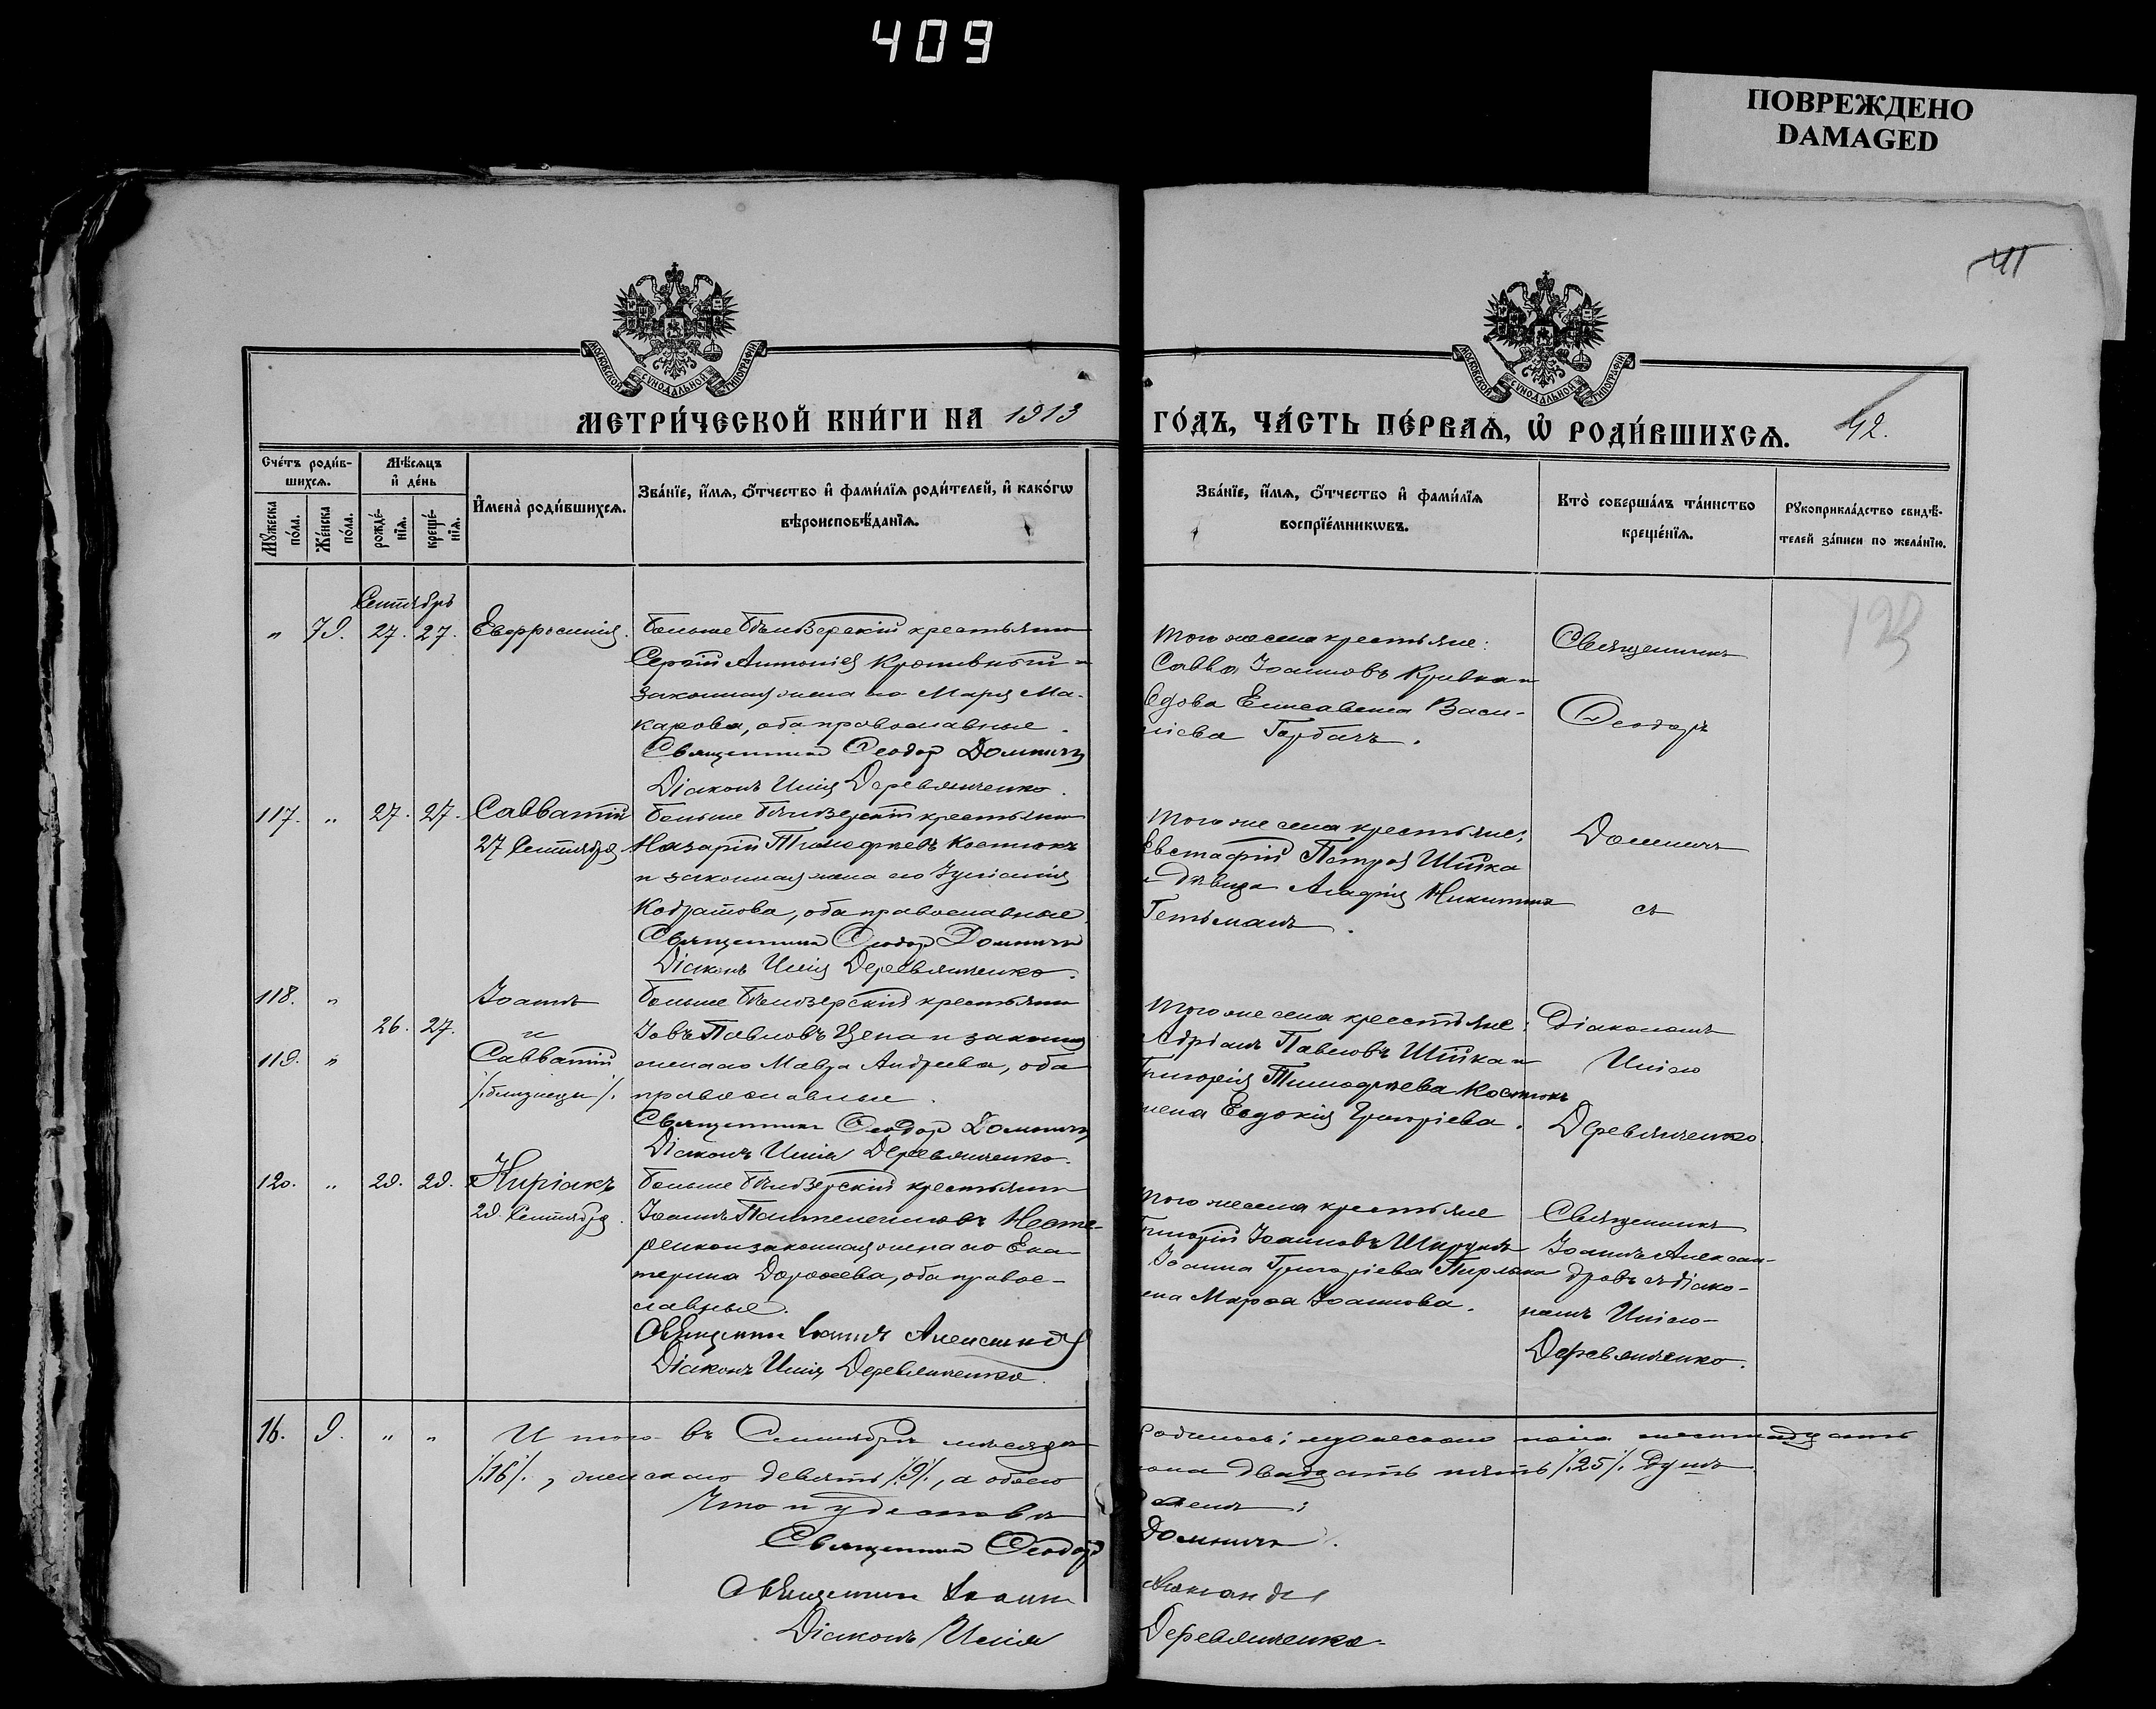 409
ПОВРЕЖДЕНО
DAMAGED
41
МОСКОВСКОЙ СѴНОДАЛЬНОЙ ТИПОГРАФІИ
МОСКОВСКОЙ СѴНОДАЛЬНОЙ ТИПОГРАФІИ
МЕТРИ́ЧЕСКОЙ КНИ́ГИ НА 1913
ГО́ДЪ, ЧА́СТЬ ПЕ́РВАѦ, Ѡ҆ РОДИ́ВШИХСѦ.
42.
Сче́тъ роди́в-
шихсѧ.
Мѣ́сѧцъ
и҆ де́нь
Мꙋ́жеска
по́ла.
Же́нска
по́ла.
рожде́-
нїѧ.
креще́-
нїѧ.
И҆мена̀ роди́вшихсѧ.
Зва́нїе, и҆́мѧ, ѻ҆́тчество и҆ фами́лїѧ роди́телей, и҆ како́гѡ
вѣроисповѣ́данїѧ.
Зва́нїе, и҆́мѧ, ѻ҆́тчество и҆ фами́лїѧ
воспрїе́мникѡвъ.
Кто̀ соверша́лъ та́инство
креще́нїѧ.
Рꙋкоприкла́дство свидѣ́-
телей за́писи по жела́нїю.
Сентябрь
" 79. 27. 27. Евфросинія.
Больше Бѣлозерскій крестьянин
Сергій Антоніев Кропивный и
законная жена его Марія Ма-
карова, оба православные.
Священник Ѳеодор Домнич
Діаконъ Илія Деревянченко.
Того же села крестьяне:
Савва Іоанновъ Кривка и
вдова Елисавета Васи-
ліева Горбачъ.
Священникъ
Ѳеодоръ
117. " 27. 27. Савватій
27 Сентября
Больше Бѣлозерскій крестьянин
Назарій Тимофеевъ Костюкъ
и законная жена его Іуліанія
Кодратова, оба православные.
Священник Ѳеодор Домнич
Діаконъ Илія Деревянченко.
Того же села крестьяне:
Евстафій Петров Шійка
и дѣвица Агафія Никитина
Гетьманъ.
Домничъ
съ
118. "
26. 27.
119. "
Іоаннъ
и
Савватій
/.близнецы/.
Больше Бѣлозерскій крестьянин
Іовъ Павловъ Цепа и законная
жена его Мавра Андреева, оба
православные.
Священник Ѳеодор Домнич
Діаконъ Илія Деревянченко.
Того же села крестьяне:
Адріанъ Павловъ Шійка и
Григорія Тимофеева Костюкъ
жена Евдокія Григоріева.
Діакономъ
Иліею
Деревянченко.
120. " 29. 29. Киріакъ
29. Сентября.
Больше Бѣлозерскій крестьянин
Іоаннъ Пантелеимоновъ Несте-
ренко и законная жена его Ека-
терина Дороѳеева, оба право-
славные.
Священник Іоаннъ Александров
Діаконъ Илія Деревянченко.
Того же села крестьяне
Григорій Іоанновъ
Іоанна Григоріева
жена Марѳа Іоаннова.
Священникъ
Іоаннъ Алексан-
дровъ съ діако-
номъ Иліею
Деревянченко.
16. 9. " " Итого въ Сентябрѣ мѣсяцѣ
родилось: мужескаго пола шестнадцать
/.16/., женскаго девять /.9/., а обоего
пола двадцать пять /.25/. душъ.
Что и удостовѣ-
ряемъ:
Священник Ѳеодор
Домничъ.
Священник Іоанн
Александров
Діаконъ Илія
Деревянченко.